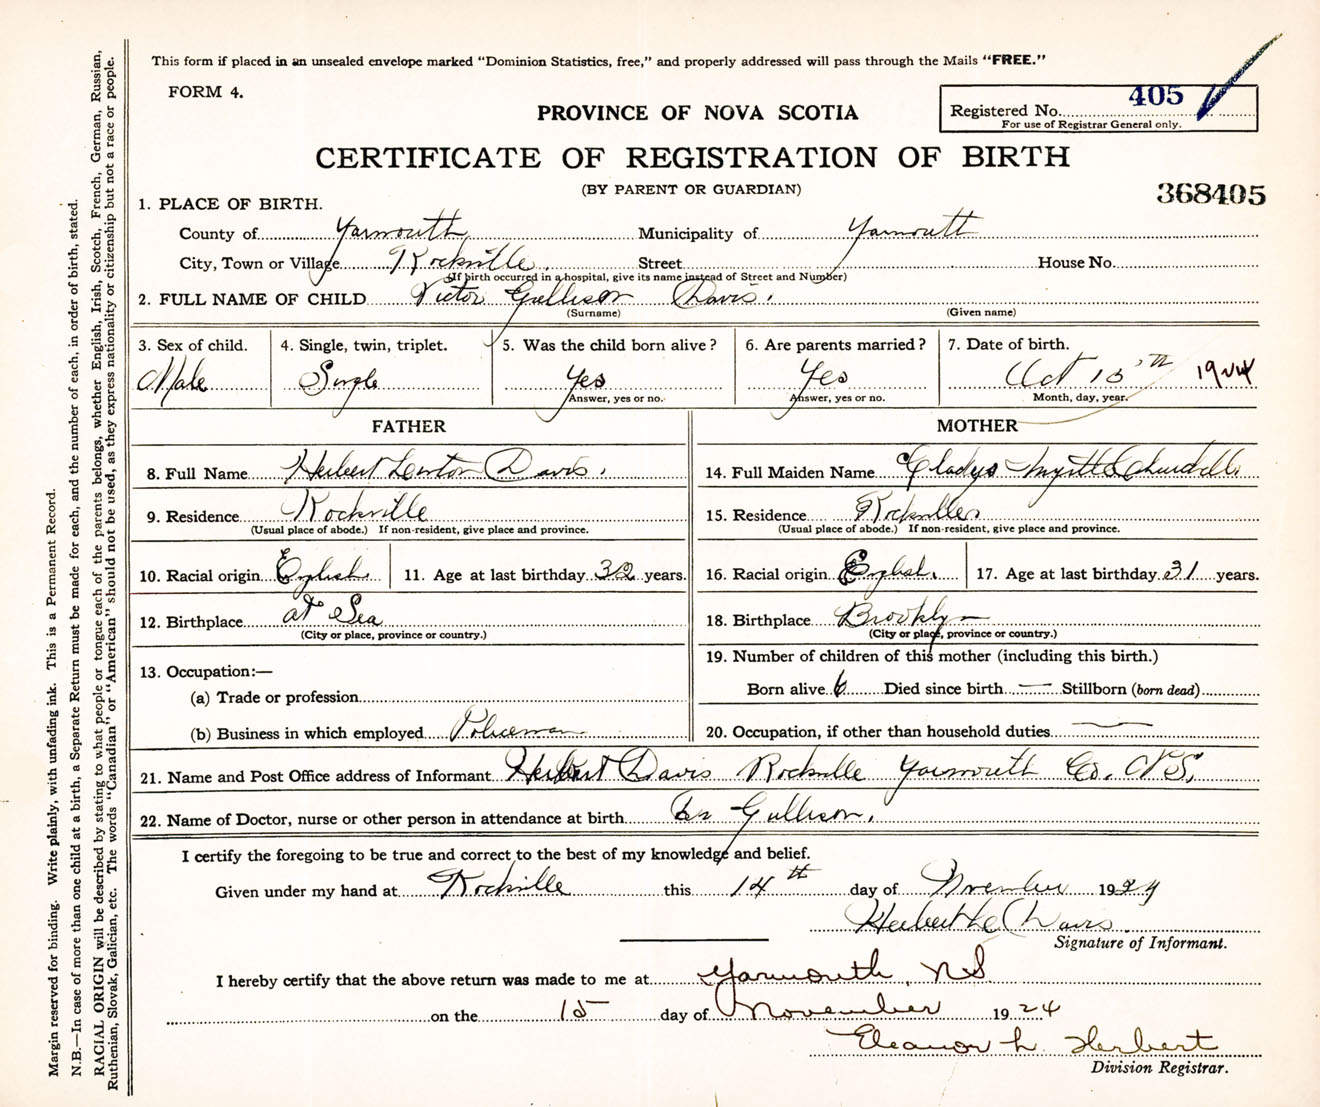 This form if placed in an unsealed envelope marked "Dominion Statistics, free," and properly addressed will pass through the Mails "FREE."
FORM 4.
405
Registered No.
For use of Registrar General only.
PROVINCE OF NOVA SCOTIA
CERTIFICATE OF REGISTRATION OF BIRTH
(BY PARENT OR GUARDIAN)
368405
1. PLACE OF BIRTH.
County of Yarmouth Municipality of Yarmouth
City, Town or Village Rockville. Street House No.
(If birth occurred in a hospital, give its name instead of Street and Number)
2. FULL NAME OF CHILD Victor Gullison Davis.
(Surname) (Given name)
3. Sex of child. 4. Single, twin, triplet. 5. Was the child born alive? 6. Are parents married? 7. Date of birth.
Male Single Yes Yes Oct 15th 1924
Answer, yes or no. Answer, yes or no. Month, day, year.
FATHER MOTHER
8. Full Name Herbert Lenton Davis. 14. Full Maiden Name Gladys Myrtle Churchill
9. Residence Rockville 15. Residence Rockville
(Usual place of abode.) If non-resident, give place and province. (Usual place of abode.) If non-resident, give place and province.
10. Racial origin English 11. Age at last birthday 32 years. 16. Racial origin English. 17. Age at last birthday 31 years.
12. Birthplace at Sea 18. Birthplace Brooklyn
(City or place, province or country.) (City or place, province or country.)
13. Occupation:— 19. Number of children of this mother (including this birth.)
(a) Trade or profession Born alive 6 Died since birth — Stillborn (born dead)
(b) Business in which employed Policeman 20. Occupation, if other than household duties —
21. Name and Post Office address of Informant Herbert Davis Rockville Yarmouth Co. N.S.
22. Name of Doctor, nurse or other person in attendance at birth Dr Gullison.
I certify the foregoing to be true and correct to the best of my knowledge and belief.
Given under my hand at Rockville this 14th day of November 1924
Herbert L Davis.
Signature of Informant.
I hereby certify that the above return was made to me at Yarmouth, N S
on the 15 day of November 1924
Eleanor L. Herbert
Division Registrar.
Margin reserved for binding. Write plainly, with unfading ink. This is a Permanent Record.
N.B.—In case of more than one child at a birth, a Separate Return must be made for each, and the number of each, in order of birth, stated.
RACIAL ORIGIN will be described by stating to what people or tongue each of the parents belongs, whether English, Irish, Scotch, French, German, Russian,
Ruthenian, Slovak, Galician, etc. The words "Canadian" or "American" should not be used, as they express nationality or citizenship but not a race or people.